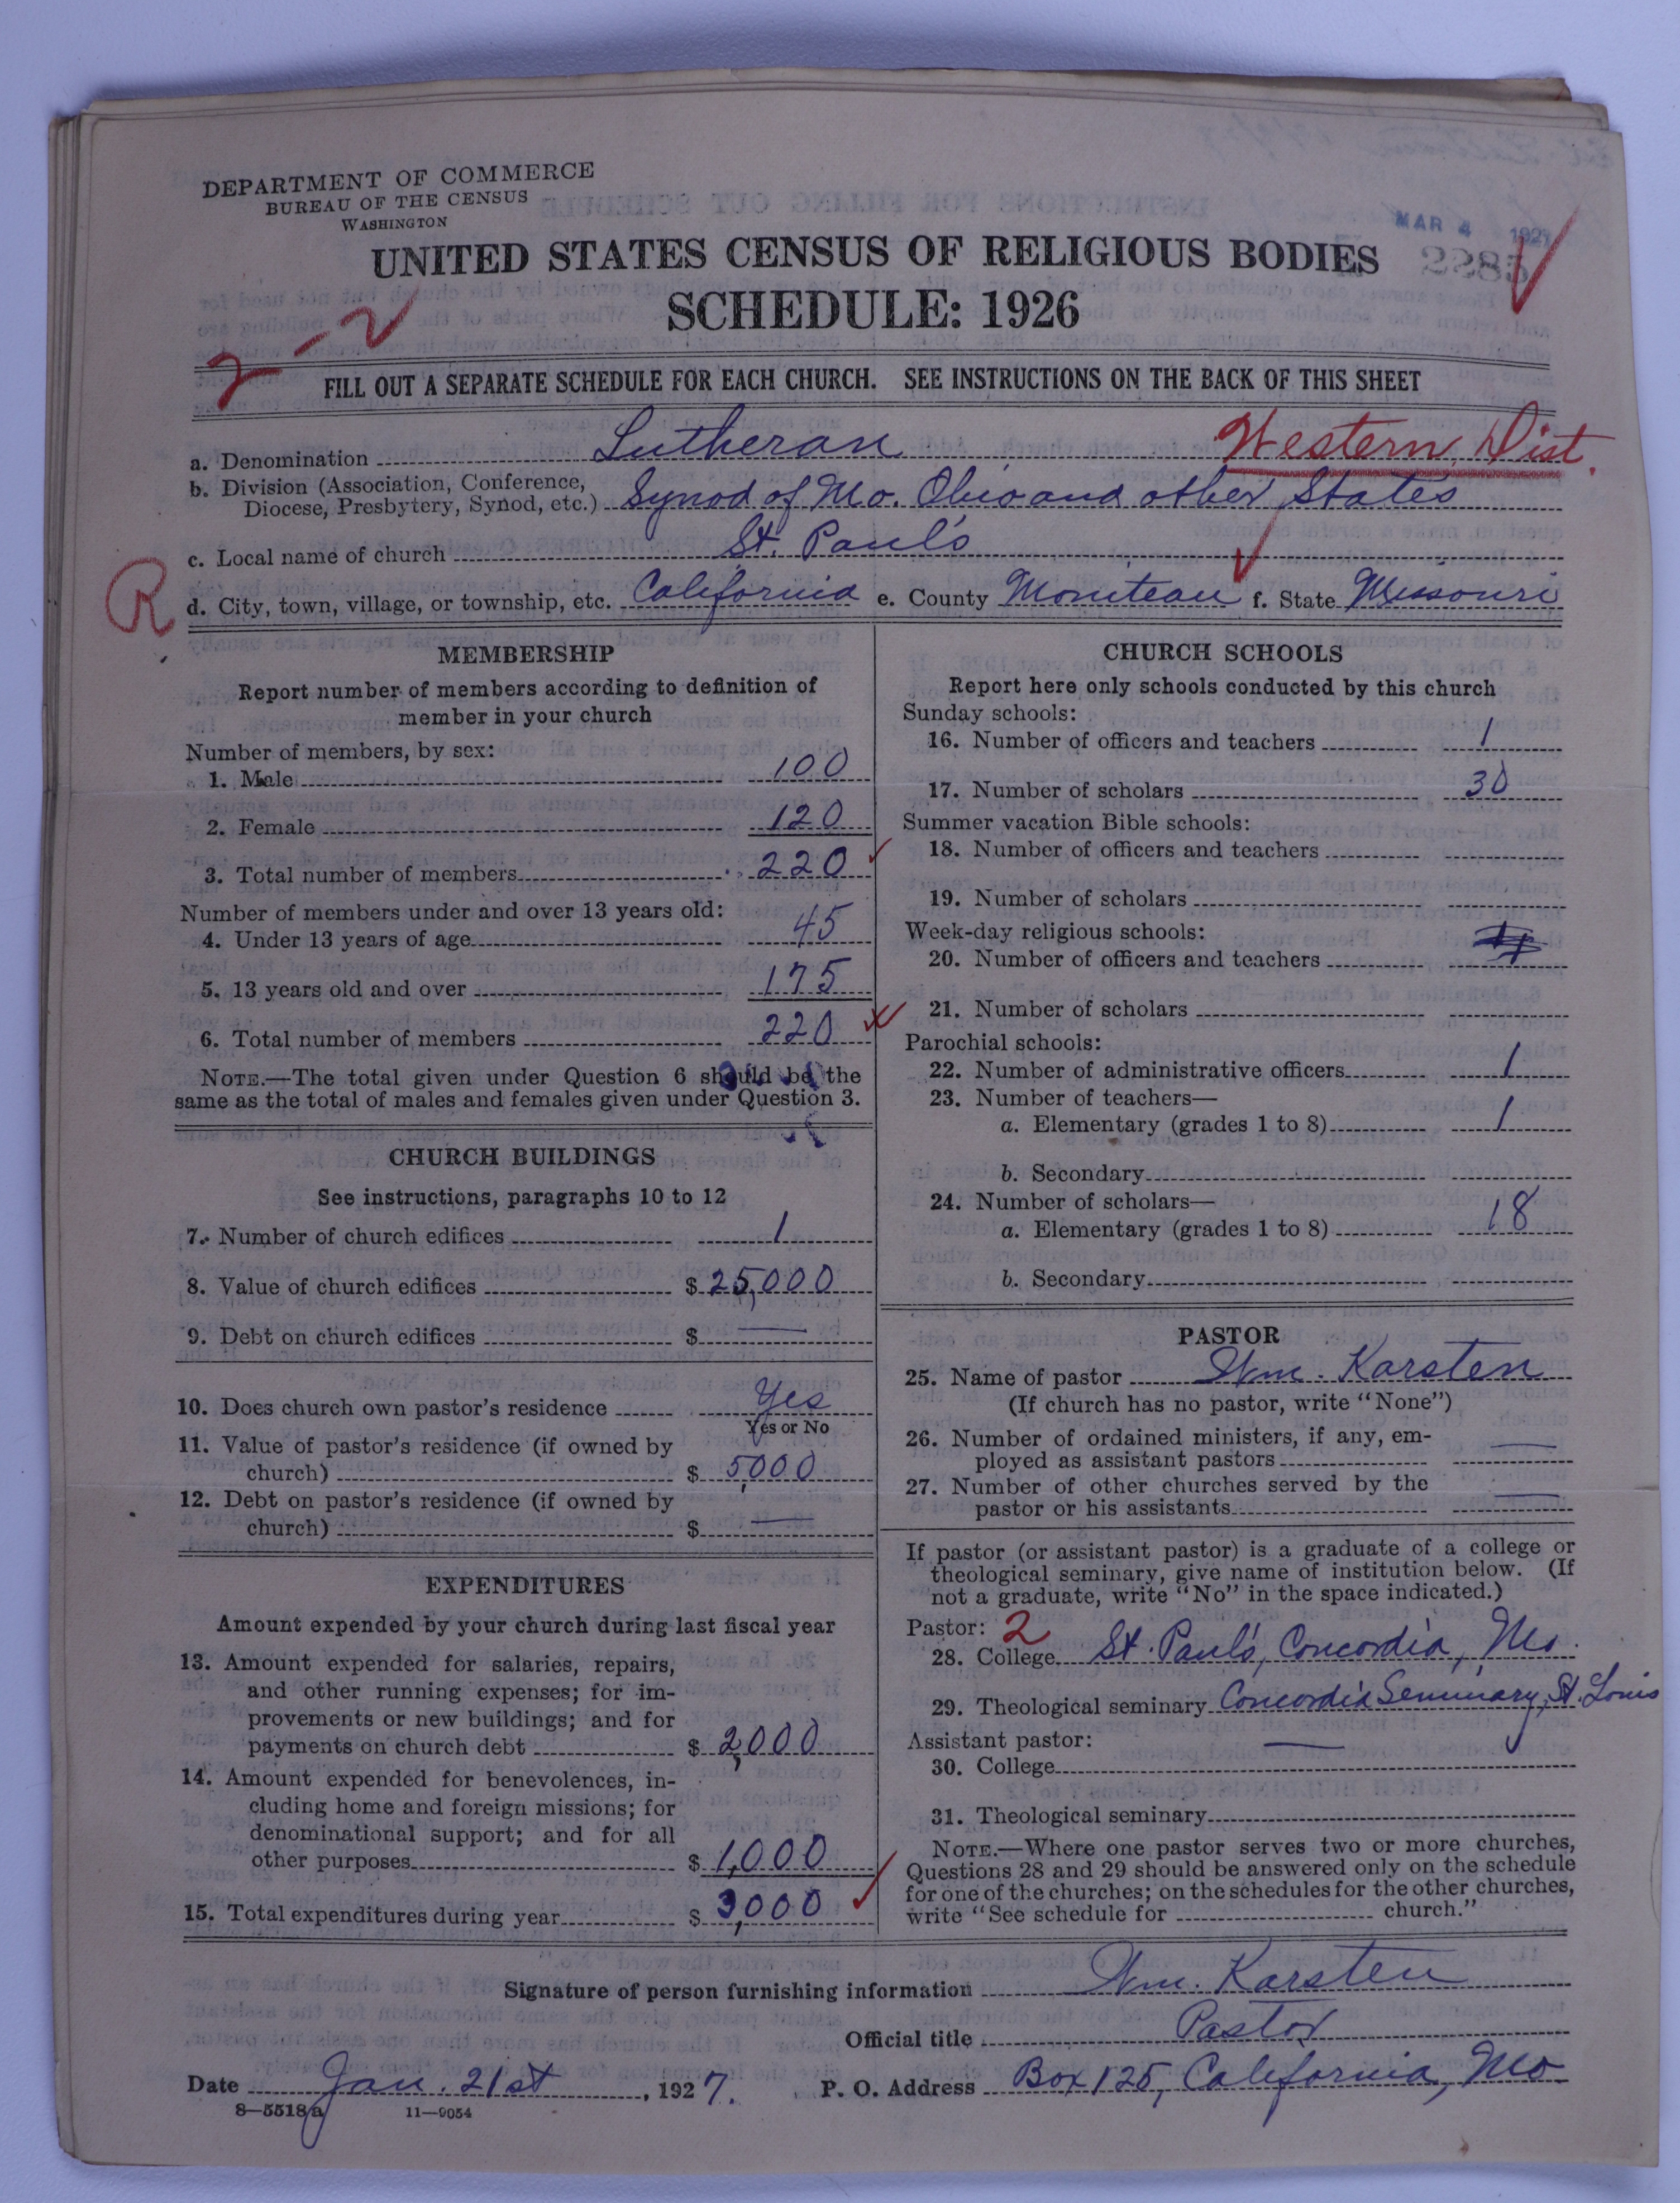 DEPARTMENT OF COMMERCE
BUREAU OF THE CENSUS
WASHINGTON
MAR 4 1927
UNITED STATES CENSUS OF RELIGIOUS BODIES
2285
SCHEDULE: 1926
2-2
FILL OUT A SEPARATE SCHEDULE FOR EACH CHURCH. SEE INSTRUCTIONS ON THE BACK OF THIS SHEET
a. Denomination Lutheran Western Dist.
b. Division (Association, Conference,
Diocese, Presbytery, Synod, etc.) Synod of Mo. Ohio and other States
c. Local name of church St. Paul's
R
d. City, town, village, or township, etc. California e. County Moniteau f. State Missouri
MEMBERSHIP
Report number of members according to definition of
member in your church
Number of members, by sex:
1. Male 100
2. Female 120
3. Total number of members 220
Number of members under and over 13 years old:
4. Under 13 years of age 45
5. 13 years old and over 175
6. Total number of members 220
NOTE.—The total given under Question 6 should be the
same as the total of males and females given under Question 3.
CHURCH BUILDINGS
See instructions, paragraphs 10 to 12
7. Number of church edifices 1
8. Value of church edifices $ 25,000
9. Debt on church edifices $ —
10. Does church own pastor's residence Yes
Yes or No
11. Value of pastor's residence (if owned by
church) $ 5,000
12. Debt on pastor's residence (if owned by
church) $ —
EXPENDITURES
Amount expended by your church during last fiscal year
13. Amount expended for salaries, repairs,
and other running expenses; for im-
provements or new buildings; and for
payments on church debt $ 2,000
14. Amount expended for benevolences, in-
cluding home and foreign missions; for
denominational support; and for all
other purposes $ 1,000
15. Total expenditures during year $ 3,000
CHURCH SCHOOLS
Report here only schools conducted by this church
Sunday schools:
16. Number of officers and teachers 1
17. Number of scholars 30
Summer vacation Bible schools:
18. Number of officers and teachers
19. Number of scholars
Week-day religious schools:
20. Number of officers and teachers
21. Number of scholars
Parochial schools:
22. Number of administrative officers 1
23. Number of teachers—
a. Elementary (grades 1 to 8) 1
b. Secondary
24. Number of scholars—
a. Elementary (grades 1 to 8) 18
b. Secondary
PASTOR
25. Name of pastor Wm. Karsten
(If church has no pastor, write "None")
26. Number of ordained ministers, if any, em-
ployed as assistant pastors —
27. Number of other churches served by the
pastor or his assistants —
If pastor (or assistant pastor) is a graduate of a college or
theological seminary, give name of institution below. (If
not a graduate, write "No" in the space indicated.)
Pastor: 2
28. College St. Paul's, Concordia, Mo.
29. Theological seminary Concordia Seminary, St. Louis
Assistant pastor: —
30. College
31. Theological seminary
NOTE.—Where one pastor serves two or more churches,
Questions 28 and 29 should be answered only on the schedule
for one of the churches; on the schedules for the other churches,
write "See schedule for church."
Signature of person furnishing information Wm. Karsten
Official title Pastor
Date Jan. 21st, 1927. P. O. Address Box 125, California, Mo.
8—5518a 11—9054